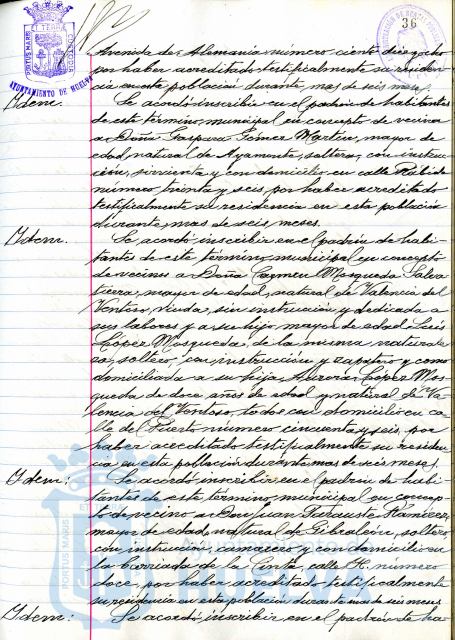 36
PORTUS MARIS ET TERRAE CUSTODIA
AYUNTAMIENTO DE HUELVA
Avenida de Alemania número ciento diez y ocho
por haber acreditado testificalmente su residen-
cia en esta población durante mas de seis meses.
Idem. Se acordó inscribir en el padrón de habitantes
de este término municipal en concepto de vecina
a Doña Gaspara Gómez Martín, mayor de
edad, natural de Ayamonte, soltera, con instruc-
ción, sirvienta y con domicilio en calle Rábida
número treinta y seis, por haber acreditado
testificalmente su residencia en esta población
durante mas de seis meses.
Idem. Se acordó inscribir en el padrón de habi-
tantes de este término municipal en concepto
de vecinos a Doña Carmen Mosqueda Salva-
tierra, mayor de edad, natural de Valencia del
Ventoso, viuda, sin instrucción y dedicada a
sus labores y a su hijo mayor de edad Luis
López Mosqueda, de la misma naturale-
za, soltero, con instrucción y zapatero y como
domiciliada a su hija Aurora López Mos-
queda de doce años de edad y natural de Va-
lencia del Ventoso, todos con domicilio en ca-
lle del Puerto número cincuenta y seis, por
haber acreditado testificalmente su residen-
cia en esta población durante mas de seis meses.
Idem: Se acordó inscribir en el padrón de habi-
tantes de este término municipal en concep-
to de vecino a Don Juan Ramírez,
mayor de edad, natural de Gibraleón, soltero,
con instrucción, camarero y con domicilio en
la barriada de la Cinta, calle H. número
doce, por haber acreditado testificalmente
su residencia en esta población durante mas de seis meses
Idem: Se acordó inscribir en el padrón de ha-
Ayuntamiento de
HUELVA
PORTUS MARIS